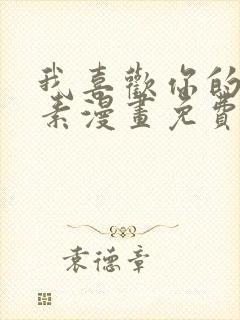 我喜歡你的
素漫畫免費
袁德章